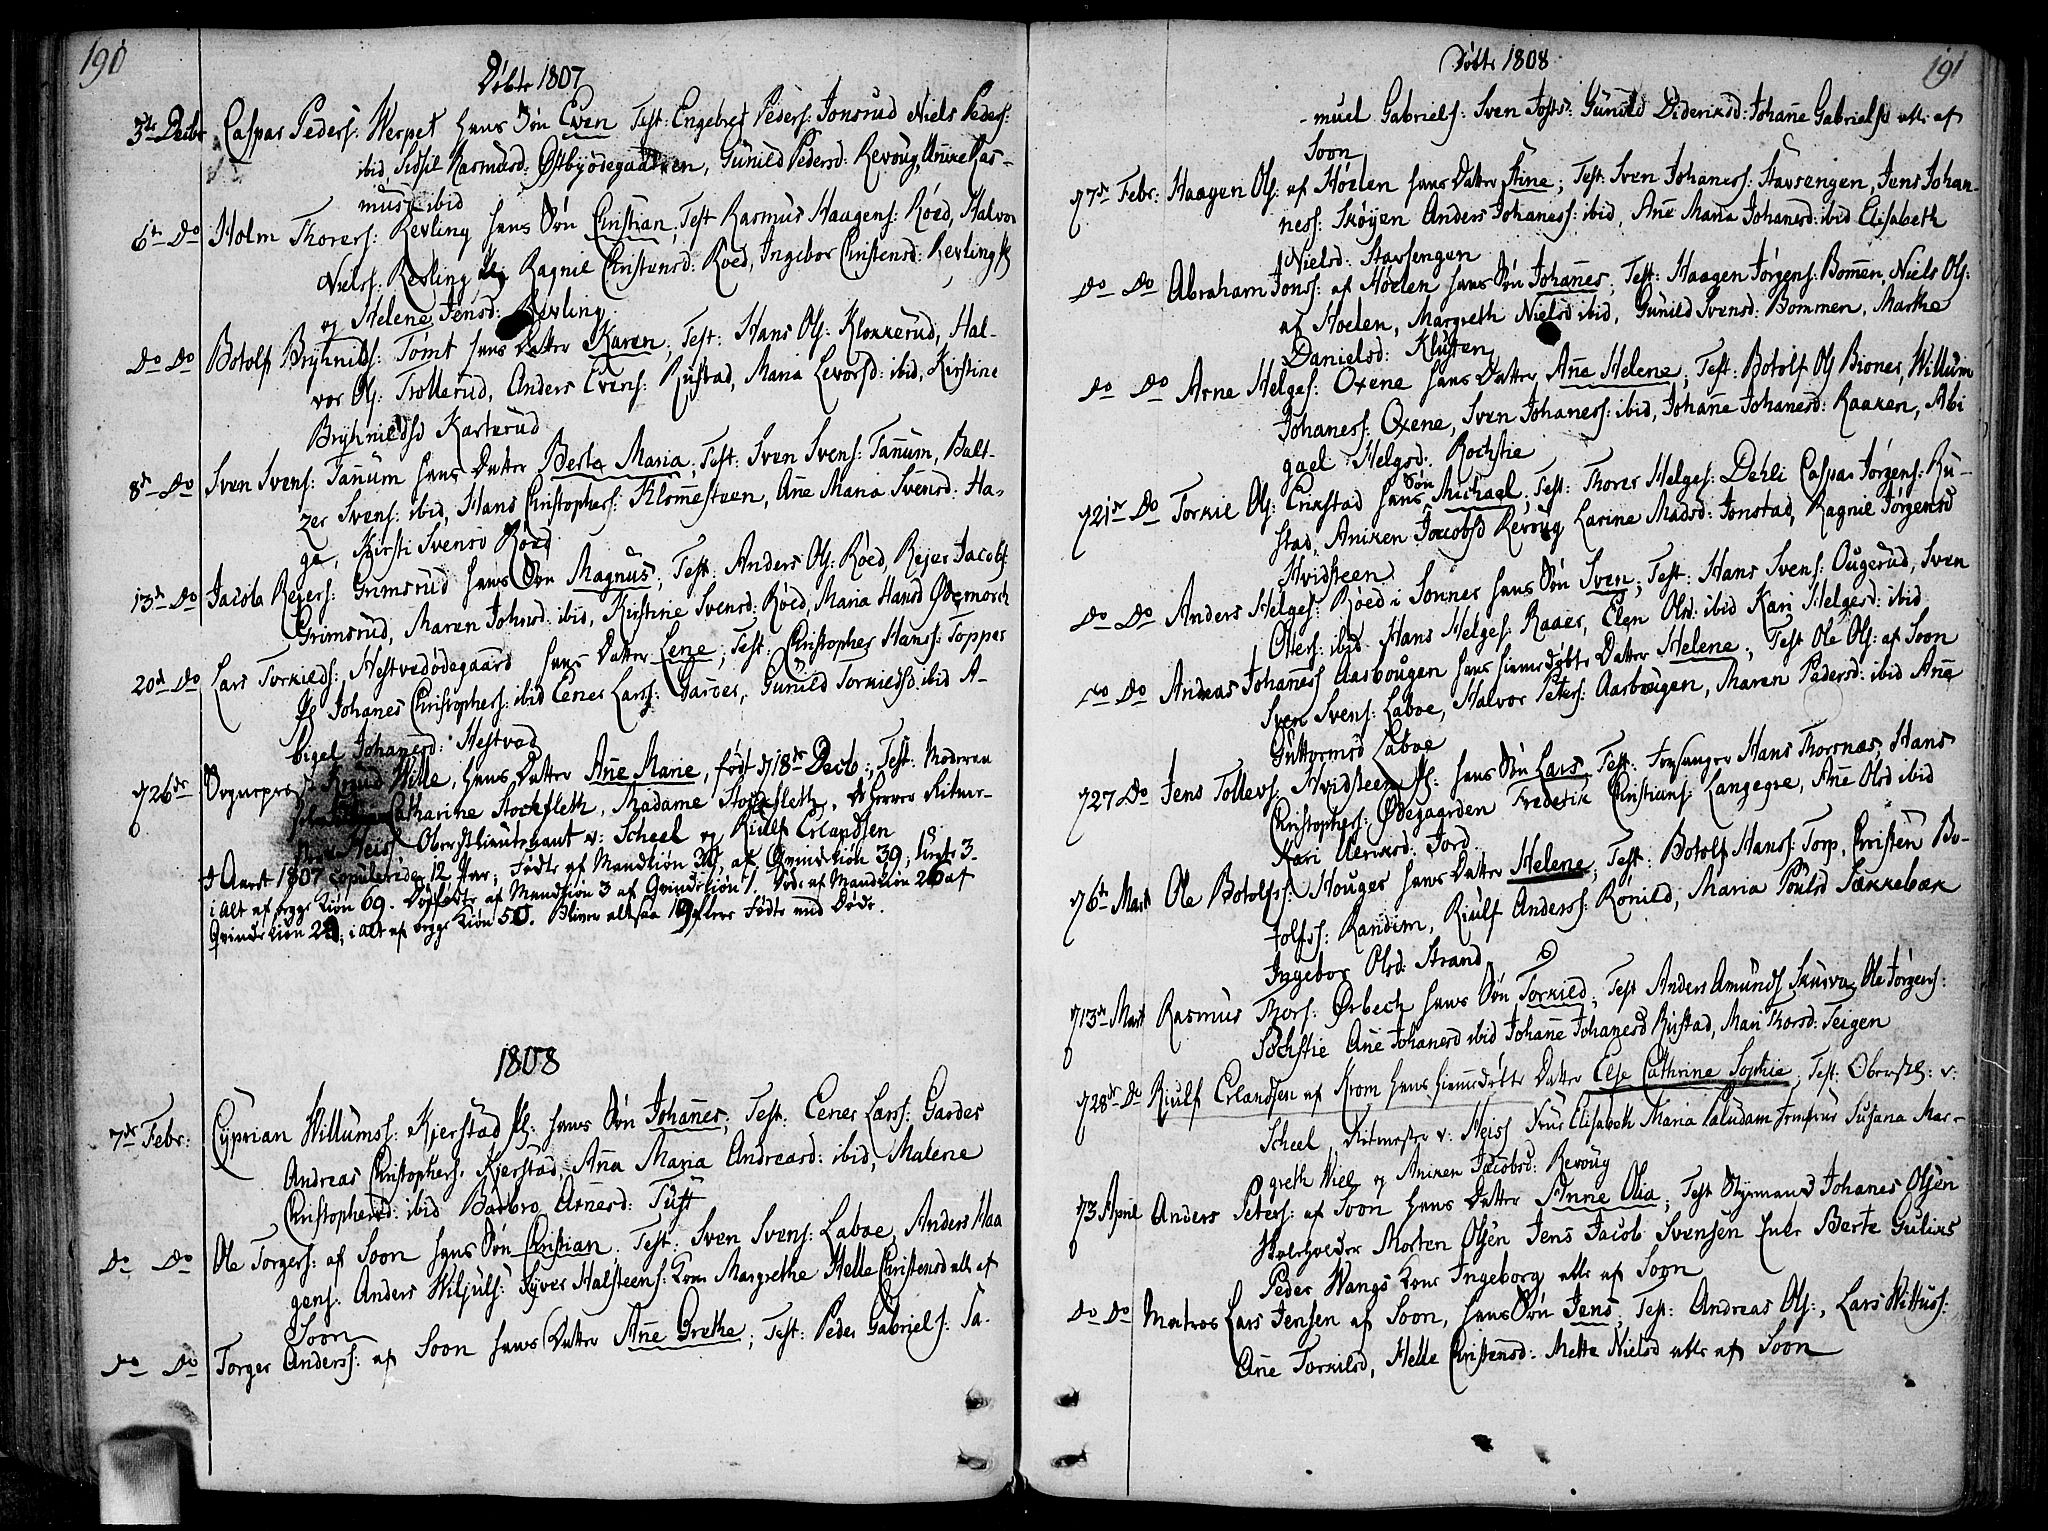 190
Döbte 1807
3de Decbr Caspar Peders: Werpet hans Sön Even Test: Engebret Peders: Jonsrud Niels Peders:
ibid, Sidsil Rasmusd: Östbyödegaarden, Gunild Pedersd: Revoug, Anne Ras-
musd ibid
6te Do Holm Thorers: Revling hans Sön Christian, Test Rasmus Haagens: Röed, Halvor
Niels: Revling Ragnil Christensd: Röed, Ingebor Christensd: Revling
og Helene Jensd: Revling
Do Do Botolf Bryhnilds: Tömt hans Datter Karen; Test: Hans Ols: Klokkerud, Hal-
vor Ols: Trollerud, Anders Evens: Riustad, Maria Levorsd: ibid, Kirstine
Bryhnildsd Karterud
8de Do Sven Svens: Tanum hans Datter Berte Maria, Test: Sven Svens: Tanum, Balt-
zer Svens: ibid, Hans Christophers: Klommesteen, Ane Maria Svensd: Ha-
ge, Kirsti Svensd Röed
13de Do Jacob Rejers: Grimsrud hans Sön Magnus; Test: Anders Ols: Röed, Rejer Jacobs:
Grimsrud, Maren Johnsd: ibid, Kirstine Svensd: Röed, Maria Hansd Ödemorck
20de Do Lars Torkilds: Hestvedödegaard hans Datter Lene; Test: Christopher Hans: Topper
Johanes Christophers: ibid Ener Lars: Garder, Gunild Torkildsd: ibid A-
bigel Johanesd: Hestvad
d 26de Sogneprest Wille, hans Datter Ane Marie, født d 18de Decb:, Test: Moderen
Catharine Stockfleth, Madame Stockfleth, D Herrer Ritme-
ster Heiss Oberstlieutenant v: Scheel og Riulf Erlandsen
I Aaret 1807 copulerede 12 Par; Fødte af Mandkiön 30, af Qvindekiön 39,
i alt af begge Kiön 69. Dødfødte af Mandkiön 3 af Qvindekiön 1. Döde af Mandkiön 26 af
Qvindekiön 24, i alt af begge Kiön 50. Bliver altsaa 19 flere Fødte end Døde.
1808
7de Febr: Cyprian Willums: Kjerstad hans Sön Johannes; Test: Ener Lars: Garder
Andreas Christophers: Kjerstad, Ana Maria Andreasd: ibid, Malene
Christophersd: ibid Barbro Arnesd: Tuft
Do Do Ole Torgers: af Soon hans Sön Christian. Test: Sven Svens: Laboe, Anders Haa
gens: Anders Wiljuls: Syver Halsteens: Kone Margrethe Helle Christensd alle af
Soon
Do Do Torger Anders: af Soon hans Datter Ane Grethe; Test: Peder Gabriels: Sa-
191
Döbte 1808
-muel Gabriels: Sven Josts: Gunild Diderikd: Johane Gabrielsd alle af
Soon
d 7de Febr: Haagen Ols: af Höelen hans Datter Stine; Test: Sven Johanes: Stavsengen, Jens Johan-
ness: Sköyen Anders Johaness: ibid, Ane Maria Johanesd: ibid Elisabeth
Nielsd: Stavsengen
Do Do Abraham Jons: af Höelen hans Sön Johannes; Test: Haagen Jörgens: Bommen, Niels Ols:
af Höelen, Margreth Nielsd ibid, Gunild Svensd: Bommen, Marthe
Danielsd: Klusten
Do Do Arne Helges: Oxene hans Datter Ane Helene; Test: Botolf Ols Biones, Willum
Johaness: Oxene, Sven Johaness: ibid, Johane Johanesd: Raaken, Abi
gael Helgesd: Rochstie
d 21de Do Torkil Ols: Enkstad hans Sön Michael, Test: Thorer Helges: Dehli Caspar Jörgens: Ru-
stad, Aniken Jacobsd Revoug Larine Madsd: Jonstad, Ragnil Jörgensd
Hvidsteen
Do Do Anders Helges: Röed i Sonner hans Sön Sven; Test: Hans Svens: Ougerud, Sven
Oters: ibid. Hans Helges: Raaer, Elen Olsd: ibid Kari Helgesd: ibid
Do Do Andreas Johannes Aasbougen hans hiemedöbte Datter Helene; Test Ole Ols: af Soon
Sven Svens: Laboe, Halvor Peters: Aasbougen, Maren Pedersd: ibid Ane
Guttormsd Laboe
d 27 Do Jens Tollevs: Hvidsteen hans Sön Lars Test: Forsanger Hans Thornæs, Hans
Christophers: Ødegaarden Frederik Christians: Langegre, Ane Olsd ibid
Kari Jord
d 6te Mart Ole Botolfs: Houger hans Datter Helene; Test: Botolf Hans: Torp, Christen Bo-
tolfs: Randim, Riulf Anders: Rönild, Maria Poulsd Sækkebæk
Ingebor Olsd: Strand
d 13de Mart Rasmus Thors: Ørbech hans Sön Torkild, Test Anders Amunds Skusva, Ole Jörgens:
Sochstie Ane Johanesd ibid Johane Johanesd Riustad, Mari Thorsd: Teigen
d 28de Do Riulf Erlandsen af Krom hans hiemedöbte Datter Else Cathrine Sophie, Test: Oberstl: v:
Scheel, Ritmester v: Heiss Frue Elisabeth Maria Paludam Jomfrue Susana Mar-
greth Wiel og Aniken Jacobsd: Revoug
d 3 April Anders Peters: af Soon hans Datter Anne Olia; Test Styrmand Johanes Olsen
Skoleholder Morten Olsen Jens Jacob Svensen Enke Berte Gulius
Peder Wangs Kone Ingeborg alle af Soon
Do Do Matros Lars Jensen af Soon, hans Sön Jens; Test: Andreas Ols:, Lars Wittus:
Ane Torkilsd, Helle Christensd: Mette Nielsd alle af Soon